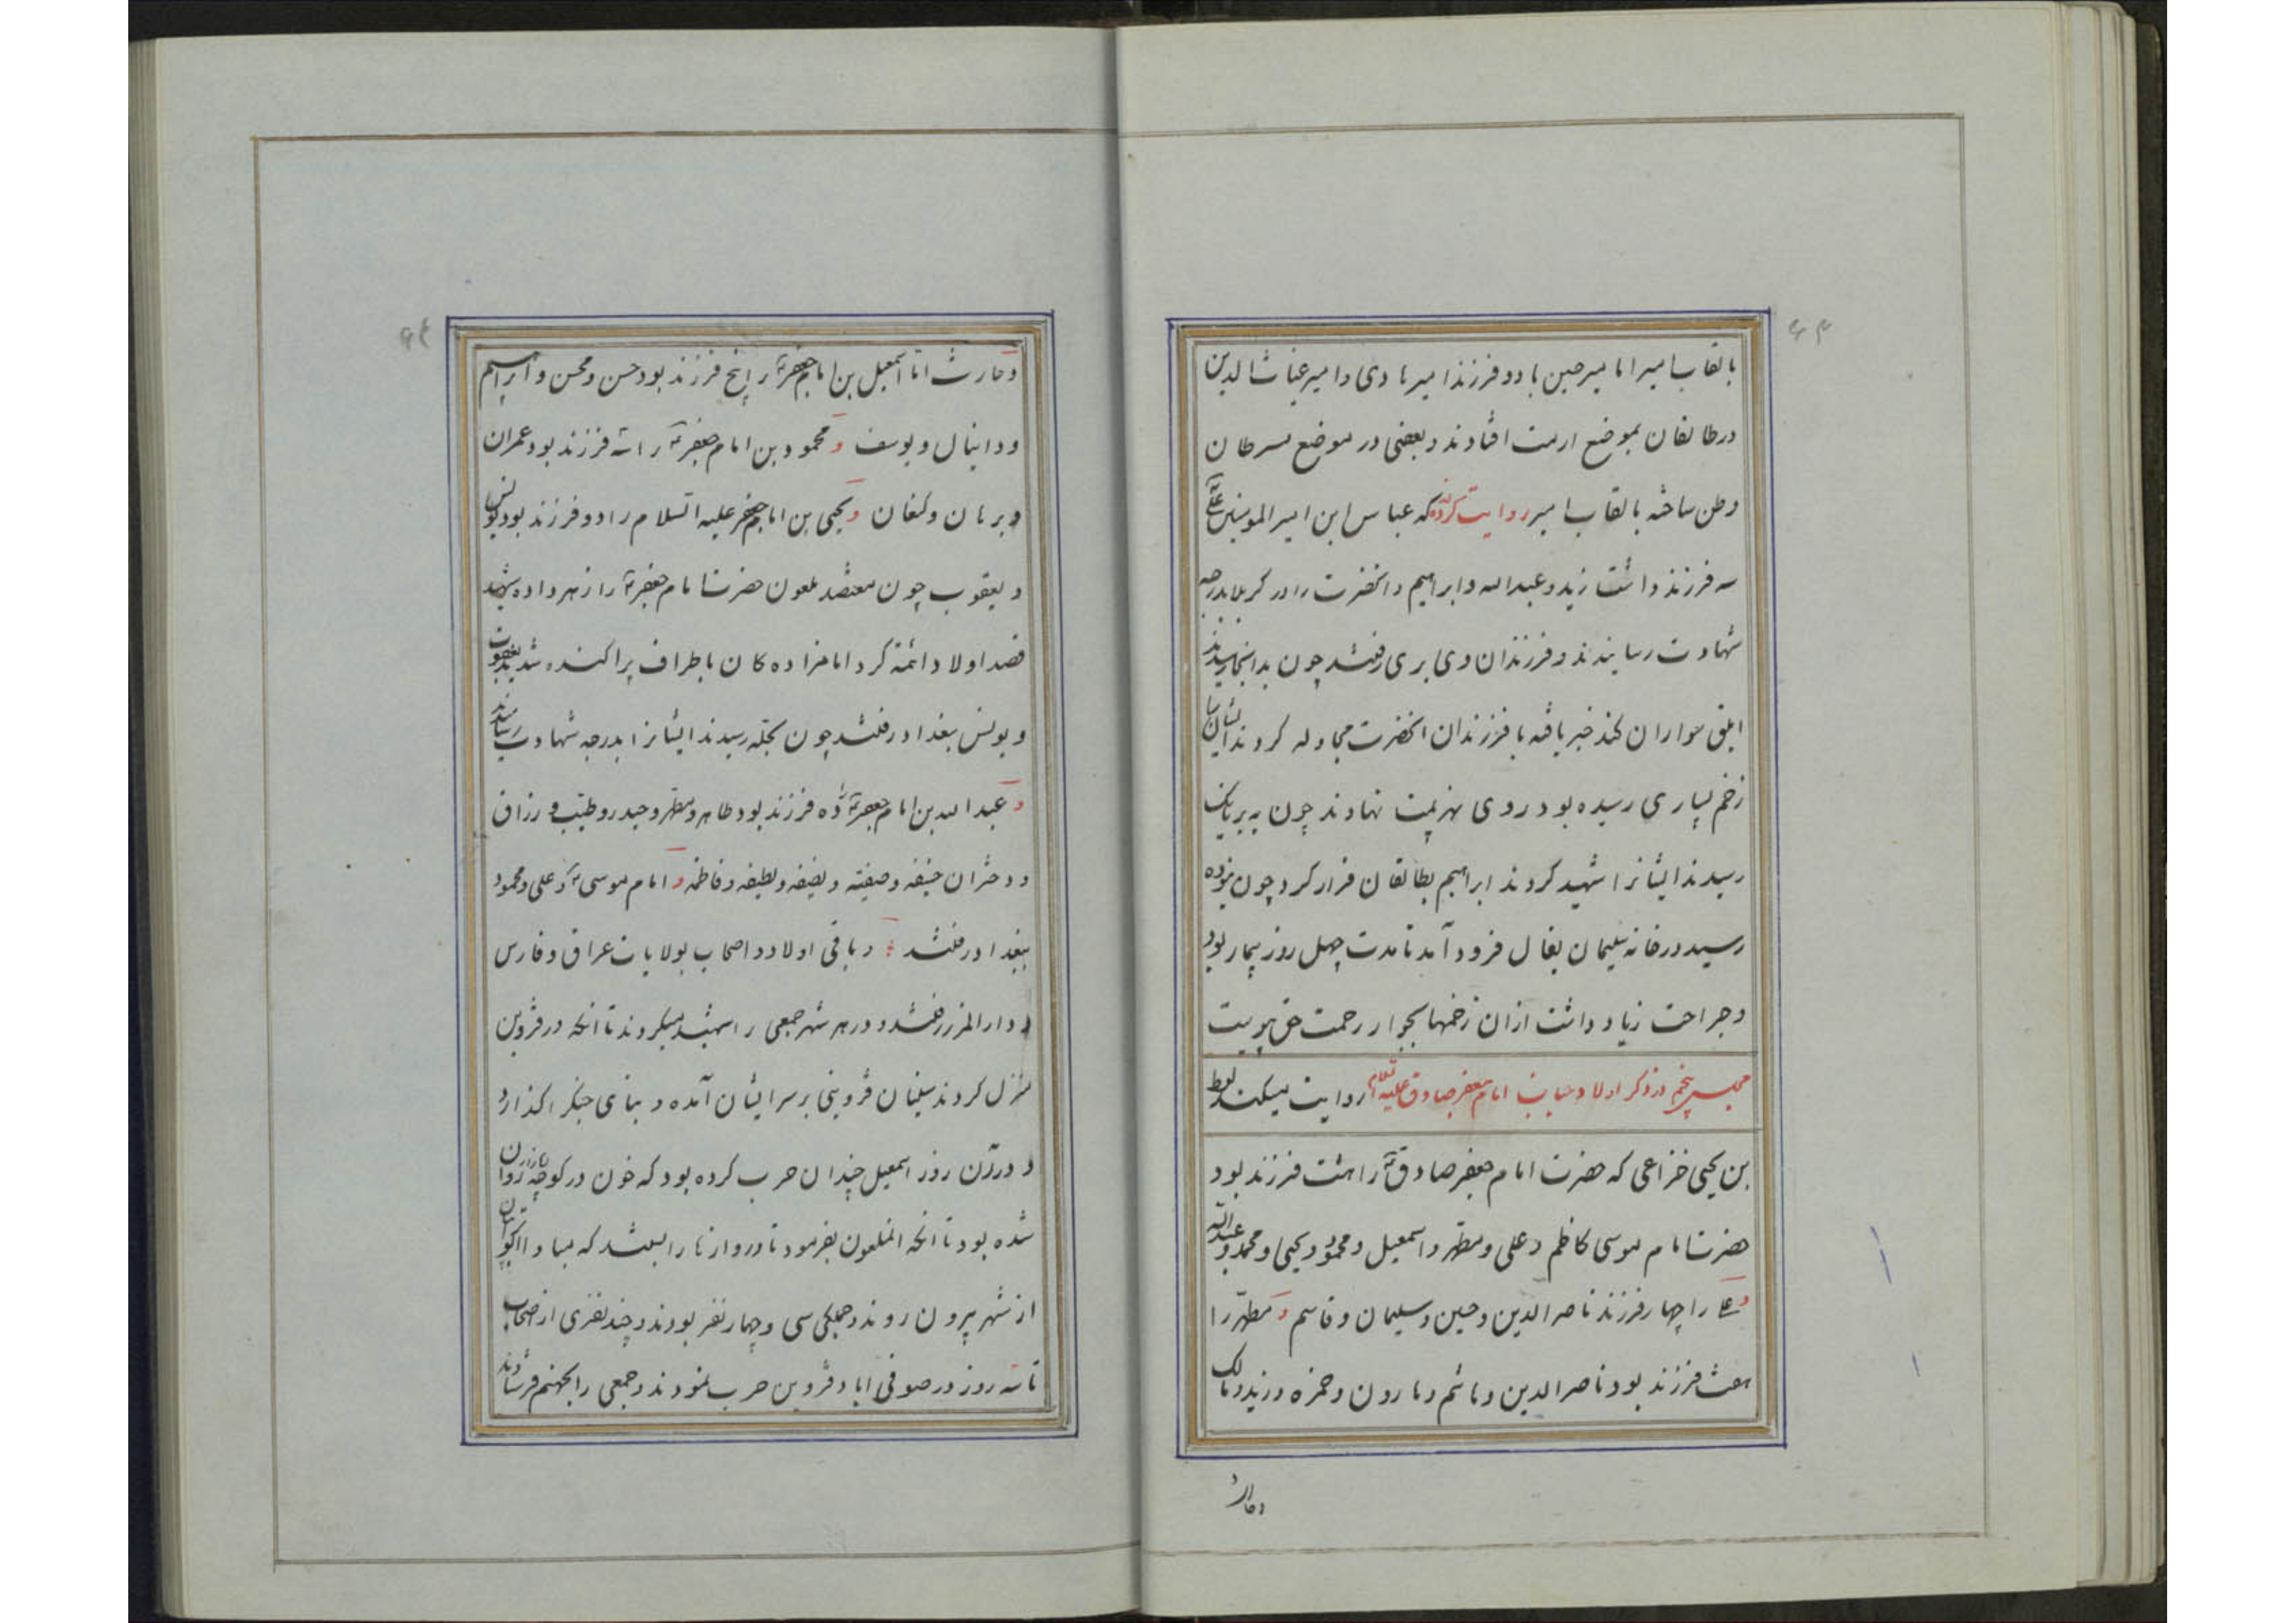 بالقاب امیر اما میر حسین با دو فرزند امیر هادی و امیر غیاث الدین
در طالقان بموضع ارمت افتادند و بعضی در موضع سرطان
وطن ساخته بالقاب امیر روایت کرده که عباس ابن امیر المومنین
سه فرزند داشت زید و عبدالله و ابراهیم و انحضرت را در کربلا بدرجه
شهادت رسانیدند و فرزندان وی بری رفتند چون بدانجا رسیدند
ابلق سواران کند خبر یافته با فرزندان انحضرت مجادله کردند
زخم بسیاری رسیده بود روی بهزیمت نهادند چون به
رسیدند ایشانرا شهید کردند ابراهیم بطالقان فرار کرد چون
رسید در خانه سلیمان بقال فرود آمد تا مدت چهل روز بیمار بود
و جراحت زیاد داشت ازان زخمها بجوار رحمت حق پیوست
مجلس پنجم در ذکر اولاد جناب امام جعفر صادق علیه السلام روایت میکند لوط
بن یحیی خزاعی که حضرت امام جعفر صادق ع را هشت فرزند بود
حضرت امام موسی کاظم و علی و مطهر و اسمعیل و محمود و یحیی و محمد و عبدالله
و علی را چهار فرزند ناصر الدین و حسین و سلیمان و قاسم و مطهّر را
هفت فرزند بود ناصر الدین و هاشم و هارون و حمزه و زید و مالک
وحارث
وحارث اما اسمعیل بن امام جعفر را پنج فرزند بود حسن و محسن و ابراهیم
و دانیال و یوسف و محمود بن امام جعفر را سه فرزند بود عمران
و برهان و کنعان و یحیی بن امام جعفر علیه السلام را دو فرزند بود یونس
و یعقوب چون معتضد ملعون حضرت امام جعفر را زهر داده شهید
قصد اولاد ائمه کرد امامزاده کان باطراف پراکنده شدند یعقوب
و یونس ببغداد رفتند چون بحلّه رسیدند ایشانرا بدرجه شهادت رسانیدند
و عبدالله بن امام جعفر را ده فرزند بود طاهر و مطهر و حیدر و طیّب و رزاق
و دختران حنیفه و صفیّه و نصیفه و لطیفه و فاطمه و امام موسی و علی و محمود
ببغداد رفتند و باقی اولاد و اصحاب بولایات عراق و فارس
و دار المرز رفتند و در هر شهر جمعی را شهید میکردند تا انکه در قزوین
منزل کردند سلیمان قزوینی بر سر ایشان آمده و بنای جنگ را گذارد
و در آن روز اسمعیل چندان حرب کرده بود که خون در کوچه روان
شده بود تا انکه انملعون بفرمود تا دروازها را ببستند که مبادا
از شهر بیرون روند و جملگی سی و چهار نفر بودند و چند نفری از اصحاب
تا سه روز در صوفی اباد قزوین حرب نمودند و جمعی را بجهنم فرستادند